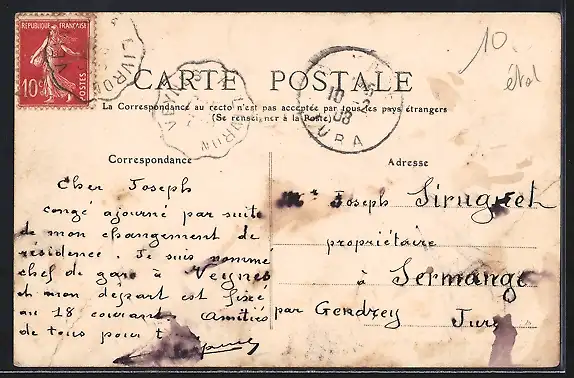 RÉPUBLIQUE FRANÇAISE
POSTES
10c
10.
CARTE POSTALE
La Correspondance au recto n'est pas acceptée par tous les pays étrangers
(Se renseigner à la Poste)
10 -2
08
JURA
Correspondance
Cher Joseph
congé ajourné par suite
de mon changement de
résidence. Je suis nommé
chef de gare à Veynes
et mon départ est fixé
au 18 courant. Amitiés
de tous pour t
Adresse
Mr Joseph Siruguet
propriétaire
à Sermange
par Gendrey Jura